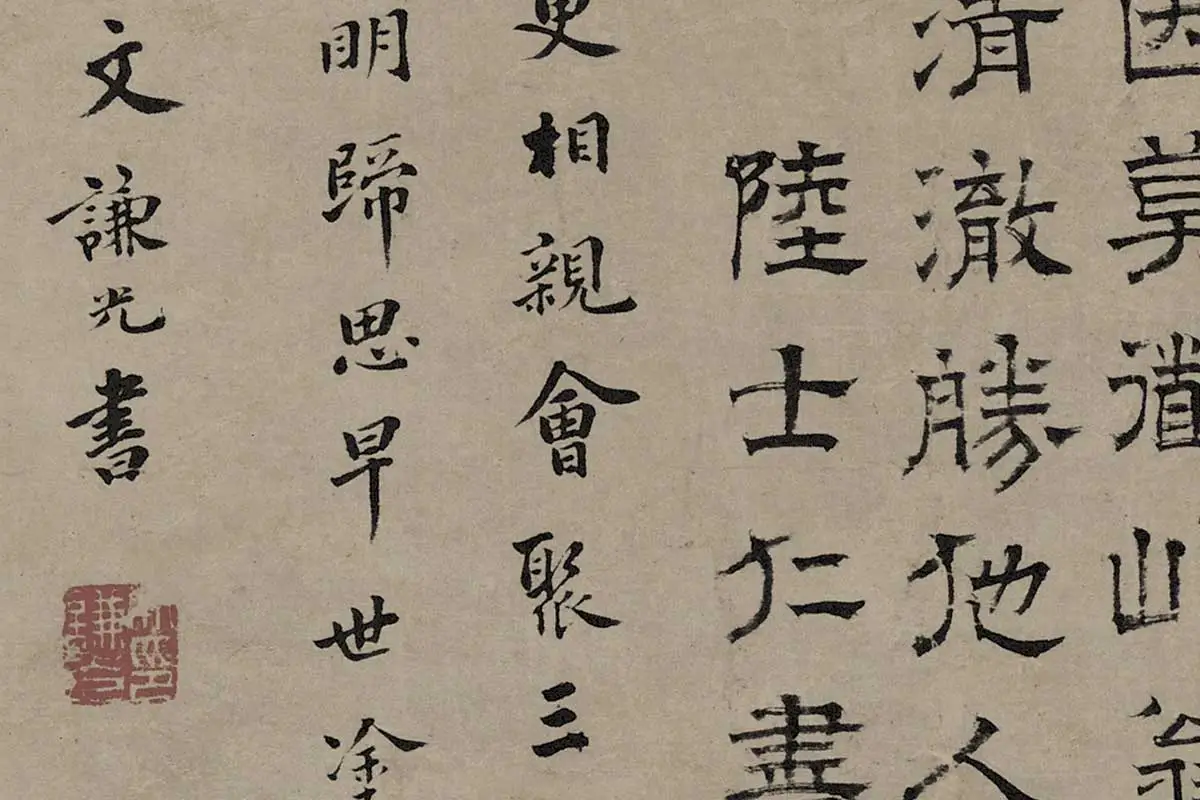 因莫道山翁
清澈勝他人
陸士仁書
更相親會聚三
明歸思早世塗
文謙光書